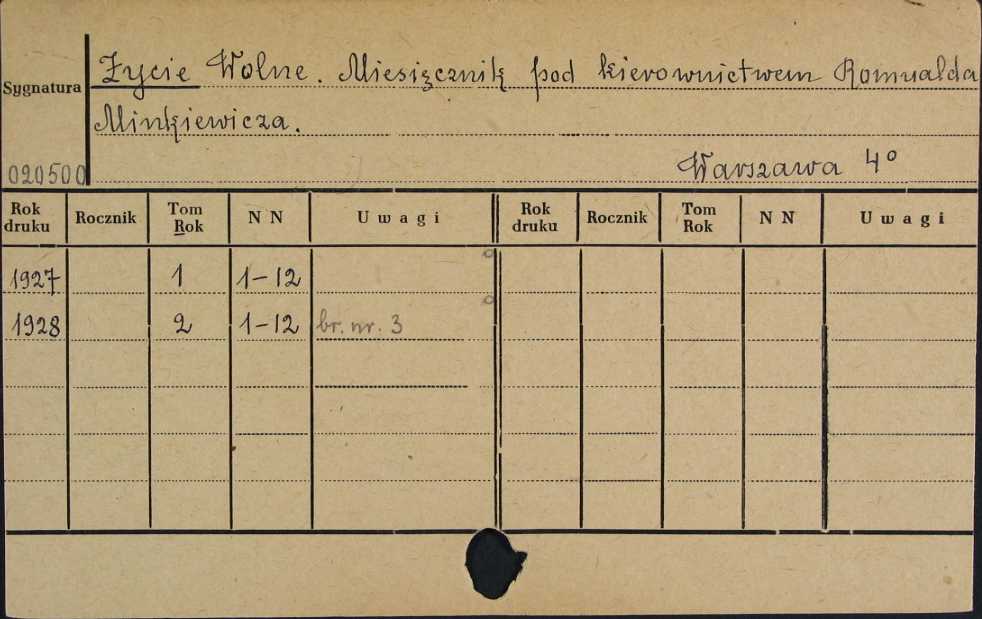 Sygnatura
Życie Wolne. Miesięcznik pod kierownictwem Romualda
Minkiewicza.
020500
Warszawa 4°
Rok druku Rocznik Tom Rok N N Uwagi Rok druku Rocznik Tom Rok N N Uwagi
1927 1 1-12
1928 2 1-12 br. nr. 3